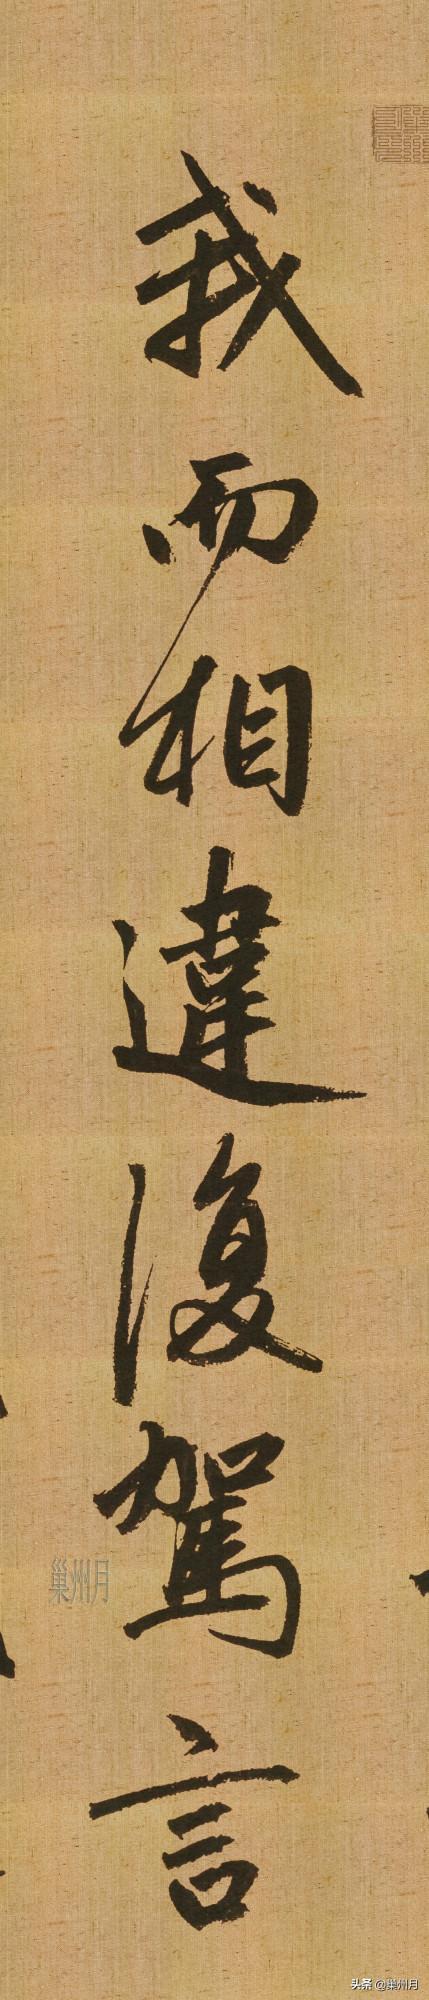 我而相違復駕言
巢州月
头条 @巢州月